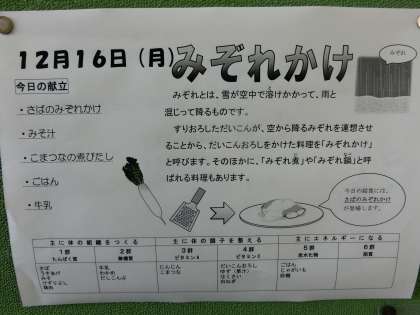 12月16日(月)みぞれかけ
みぞれ
今日の献立
・さばのみぞれかけ
・みそ汁
・こまつなの煮びたし
・ごはん
・牛乳
みぞれとは、雪が空中で溶けかかって、雨と
混じって降るものです。
すりおろしただいこんが、空から降るみぞれを連想させ
ることから、だいこんおろしをかけた料理を「みぞれかけ」
と呼びます。そのほかに、「みぞれ煮」や「みぞれ鍋」と呼
ばれる料理もあります。
今日の給食には、
さばのみぞれかけ
が登場します。
主に体の組織をつくる 主に体の調子を整える 主にエネルギーになる
1群 2群 3群 4群 5群 6群
たんぱく質 無機質 ビタミンA ビタミンC 炭水化物 脂質
さば 牛乳 にんじん だいこんおろし ごはん
うすあげ わかめ こまつな ゆず(果汁) じゃがいも
みそ だしこんぶ はくさい 砂糖
けずりぶし 白ねぎ